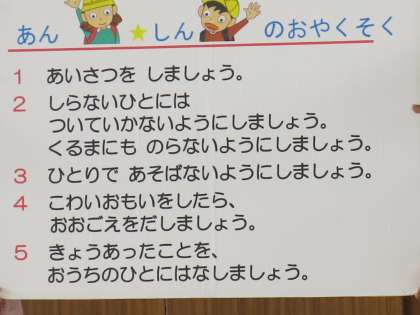 あん★しんのおやくそく
1 あいさつを しましょう。
2 しらないひとには
ついていかないようにしましょう。
くるまにも のらないようにしましょう。
3 ひとりで あそばないようにしましょう。
4 こわいおもいをしたら、
おおごえをだしましょう。
5 きょうあったことを、
おうちのひとにはなしましょう。